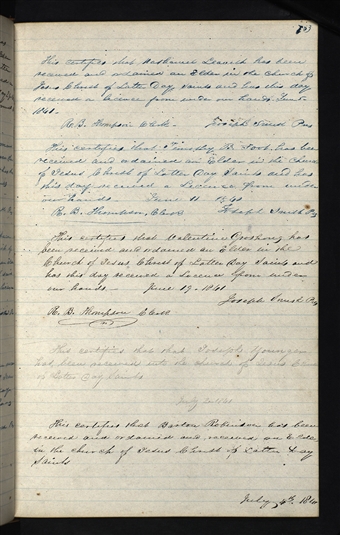 This certifies that Nathaniel Leavitt has been
received and ordained an Elder in the Church of
Jesus Christ of Latter Day Saints and has this day
received a Licence from under our hands June
1841
R. B. Thompson Clerk Joseph Smith Pres
This certifies that Timothy B. Foot has been
received and ordained an Elder in the Church
of Jesus Christ of Latter Day Saints and has
this day received a Licence from under
our hands June 11 1841
R. B. Thompson, Clerk Joseph Smith Ps
This certifies that Valentine has
been received and ordained an Elder in the
Church of Jesus Christ of Latter Day Saints and
has this day received a Licence from under
our hands June 19 - 1841
Joseph Smith Ps
R. B. Thompson Clerk
This certifies that that Joseph Younger
has been received into the church of Jesus Christ
of Latter Day Saints
July 1841
This certifies that Barton Robinson has been
received and ordained and received an Elder
in the church of Jesus Christ of Latter Day
Saints
July 4th. 184